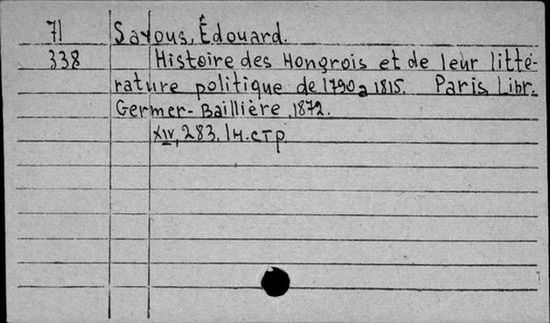 71 Sayous, Édouard.
338 Histoire des Hongrois et de leur litté-
rature politique de 1790 a 1815. Paris, Libr.
Germer-Baillière, 1872.
XIV, 283, 1 н.стр.